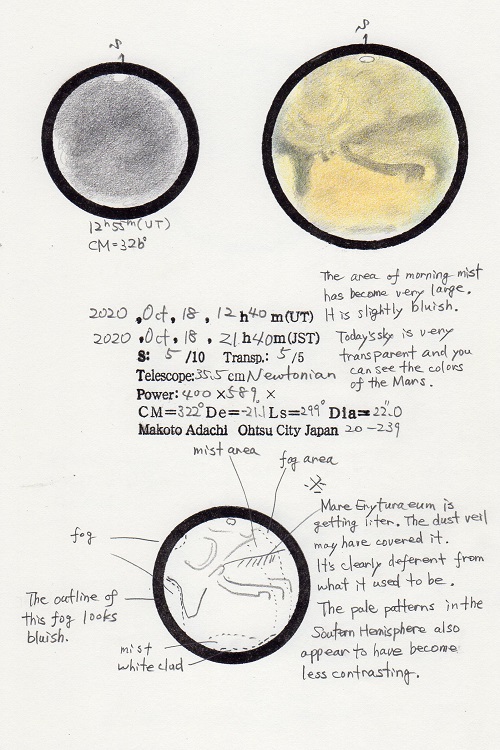 S
S
12h55m(UT)
CM=326°
The area of morning mist
has become very large.
It is slightly bluish.
2020, Oct, 18, 12h40m(UT)
2020, Oct, 18, 21h40m(JST)
S: 5 /10 Transp.: 5 /5
Telescope: 35.5 cm Newtonian
Power: 400 ×589 ×
CM=322° De=-21.1 Ls=299° Dia=22".0
Makoto Adachi Ohtsu City Japan 20-239
Today's sky is very
transparent and you
can see the colors
of the Mars.
mist area
fog area
※
Mare Erytyraeum is
getting liter. The dust veil
may have covered it.
It's clearly deferent from
what it used to be.
The pale patterns in the
Soutern Hemisphere also
appear to have become
less contrasting.
fog
The outline of
this fog looks
bluish.
mist
white clud